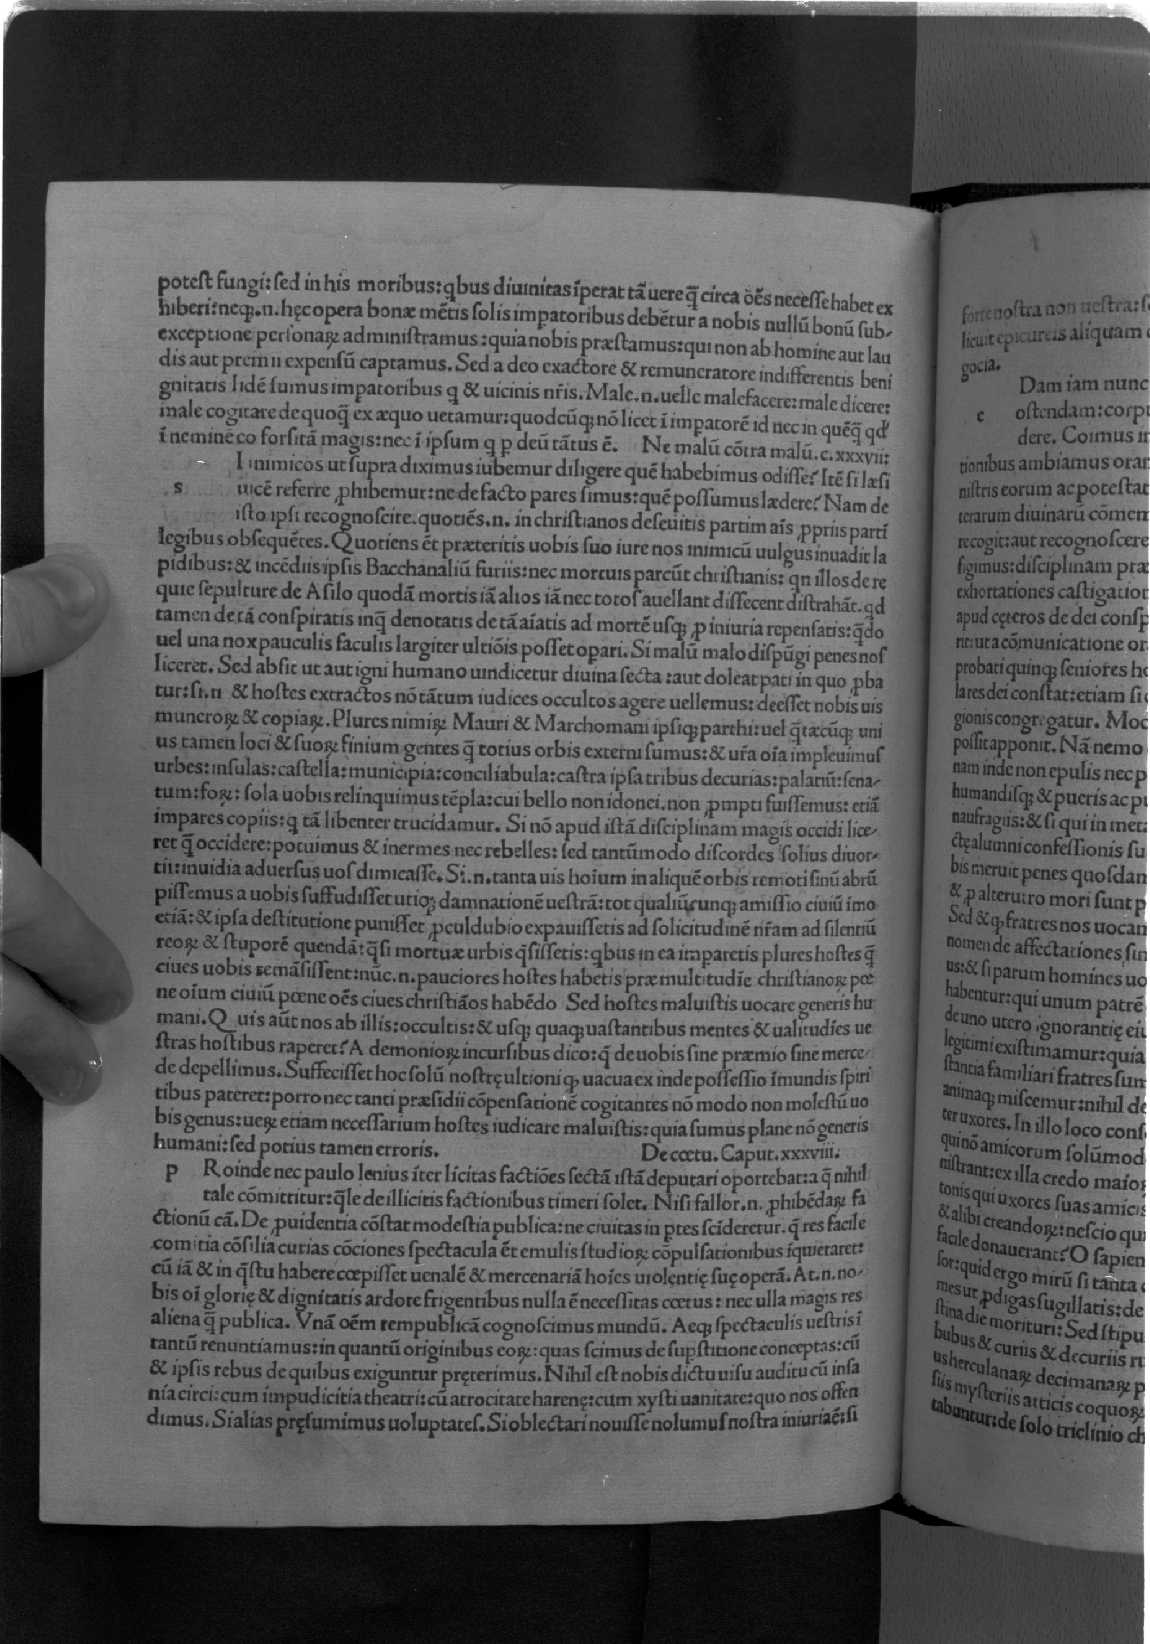 potest fungi: sed in his moribus: qbus diuinitas īperat tā uere q̄ circa oēs necesse habet ex
hiberi: neqꝫ .n. hęc opera bonæ mētis solis impatoribus debētur a nobis nullū bonū sub-
exceptione personaꝝ administramus: quia nobis præstamus: qui non ab homine aut lau
dis aut premii expensū captamus. Sed a deo exactore & remuneratore indifferentis beni
gnitatis Iidē sumus impatoribus q & uicinis nr̄is. Male .n. uelle malefacere: male dicere:
male cogitare de quoq̄ ex æquo uetamur: quodcūqꝫ nō licet ī impatorē id nec in quēq̄ qd
ī neminē eo forsitā magis: nec ī ipsum q ꝑ deū tātus ē. Ne malū cōtra malū. c. xxxvii:
s
I inimicos ut supra diximus iubemur diligere quē habebimus odisse? Itē si læsi
uicē referre ꝓhibemur: ne de facto pares simus: quē possumus lædere? Nam de
isto ipsi recognoscite. quotiēs .n. in christianos deseuitis partim aīs ꝓpriis partī
legibus obsequētes. Quotiens ēt præteritis uobis suo iure nos inimicū uulgus inuadit la
pidibus: & incēdiis ipsis Bacchanaliū furiis: nec mortuis parcūt christianis: qn illos de re
quie sepulture de Asilo quodā mortis iā alios iā nec totos auellant dissecent distrahāt. qd
tamen de tā conspiratis inq̄ denotatis de tā aīatis ad mortē usqꝫ ꝓ iniuria repensatis: q̄do
uel una nox pauculis faculis largiter ultiōis posset opari. Si malū malo dispūgi penes nos
liceret. Sed absit ut aut igni humano uindicetur diuina secta: aut doleat pati in quo ꝓba
tur: si .n & hostes extractos nō tātum iudices occultos agere uellemus: deesset nobis uis
muneroꝝ & copiaꝝ. Plures nimiꝝ Mauri & Marchomani ipsiqꝫ parthi: uel q̄tæcūqꝫ uni
us tamen loci & suoꝝ finium gentes q̄ totius orbis externi sumus: & ur̄a oīa impleuimus
urbes: insulas: castella: municipia: conciliabula: castra ipsa tribus decurias: palatiū: sena-
tum: foꝝ: sola uobis relinquimus tēpla: cui bello non idonei. non ꝓmpti fuissemus: etiā
impares copiis: q tā libenter trucidamur. Si nō apud istā disciplinam magis occidi lice-
ret q̄ occidere: potuimus & inermes nec rebelles: sed tantūmodo discordes solius diuor-
tii: inuidia aduersus uos dimicasse. Si .n. tanta uis hoīum in aliquē orbis remoti sinū abrū
pissemus a uobis suffudisset utiqꝫ damnationē uestrā: tot qualiūcunqꝫ amissio ciuiū imo
etiā: & ipsa destitutione punisset ꝓculdubio expauissetis ad solicitudinē nr̄am ad silentiū
reoꝝ & stuporē quendā: q̄si mortuæ urbis q̄sissetis: qbus in ea imparetis plures hostes q̄
ciues uobis remāsissent: nūc .n. pauciores hostes habetis præ multitudīe christianoꝝ pœ
ne oīum ciuiū pœne oēs ciues christiāos habēdo Sed hostes maluistis uocare generis hu
mani. Quis aūt nos ab illis: occultis: & usqꝫ quaqꝫ uastantibus mentes & ualitudīes ue
stras hostibus raperet? A demonioꝝ incursibus dico: q̄ de uobis sine præmio sine merce-
de depellimus. Suffecisset hoc solū nostrę ultioni qꝫ uacua ex inde possessio īmundis spiri
tibus pateret: porro nec tanti præsidii cōpensationē cogitantes nō modo non molestū uo
bis genus: ueꝝ etiam necessarium hostes iudicare maluistis: quia sumus plane nō generis
humani: sed potius tamen erroris. De cœtu. Caput. xxxviii.
p Roinde nec paulo lenius īter licitas factiōes sectā istā deputari oportebat: a q̄ nihil
tale cōmittitur: q̄le de illicitis factionibus timeri solet. Nisi fallor .n. ꝓhibēdaꝝ fa
ctionū cā. De ꝓuidentia cōstat modestia publica: ne ciuitas in ꝑtes scīderetur. q̄ res facile
comitia cōsilia curias cōciones spectacula ēt emulis studioꝝ cōpulsationibus īquietaret:
cū iā & in q̄stu habere cœpisset uenalē & mercenariā hoīes uiolentię suę operā. At .n. no-
bis oī glorię & dignitatis ardore frigentibus nulla ē necessitas cœtus: nec ulla magis res
aliena q̄ publica. Vnā oēm rempublicā cognoscimus mundū. Aeqꝫ spectaculis uestris ī
tantū renuntiamus: in quantū originibus eoꝝ: quas scimus de suꝑstitione conceptas: cū
& ipsis rebus de quibus exiguntur pręterimus. Nihil est nobis dictu uisu auditu cū insa
nia circi: cum impudicitia theatri: cū atrocitate harenę: cum xysti uanitate: quo nos offen
dimus. Si alias pręsumimus uoluptates. Si oblectari nouisse nolumus nostra iniuria ē: si
forte nostra non uestra:
licuit epicureis aliquam
gocia.
e
Dam iam nunc
ostendam: corpu
dere. Coimus in
tionibus ambiamus oran
nistris eorum ac potestat
terarum diuinarū cōmem
recogit: aut recognoscere
figimus: disciplinam præ
exhortationes castigation
apud cęteros de dei consp
rit: ut a cōmunicatione or
probati quinqꝫ seniores ho
lares dei constat: etiam si
gionis congregatur. Mod
possit apponit. Nā nemo
nam inde non epulis nec p
humandisqꝫ & pueris ac pu
naufragiis: & si qui in meta
ctę alumni confessionis su
bis meruit penes quosdam
& ꝓ alterutro mori sunt p
Sed & qꝫ fratres nos uocan
nomen de affectationes sim
us: & si parum homines uo
habentur: qui unum patrē
de uno utero ignorantię eiu
legitimi existimamur: quia
stantia familiari fratres sum
animaqꝫ miscemur: nihil de
ter uxores. In illo loco conso
qui nō amicorum solūmod
nistrant: ex illa credo maioꝝ
tonis qui uxores suas amicis
& alibi creandoꝝ: nescio qu
facile donauerant? O sapien
sor: quid ergo mirū si tanta
mes ut ꝓdigas sugillatis: de
stina die morituri: Sed stipu
bubus & curiis & decuriis ru
us herculanaꝝ decimanaꝝ p
siis mysteriis atticis coquoꝝ
tabuntur: de solo triclinio ch